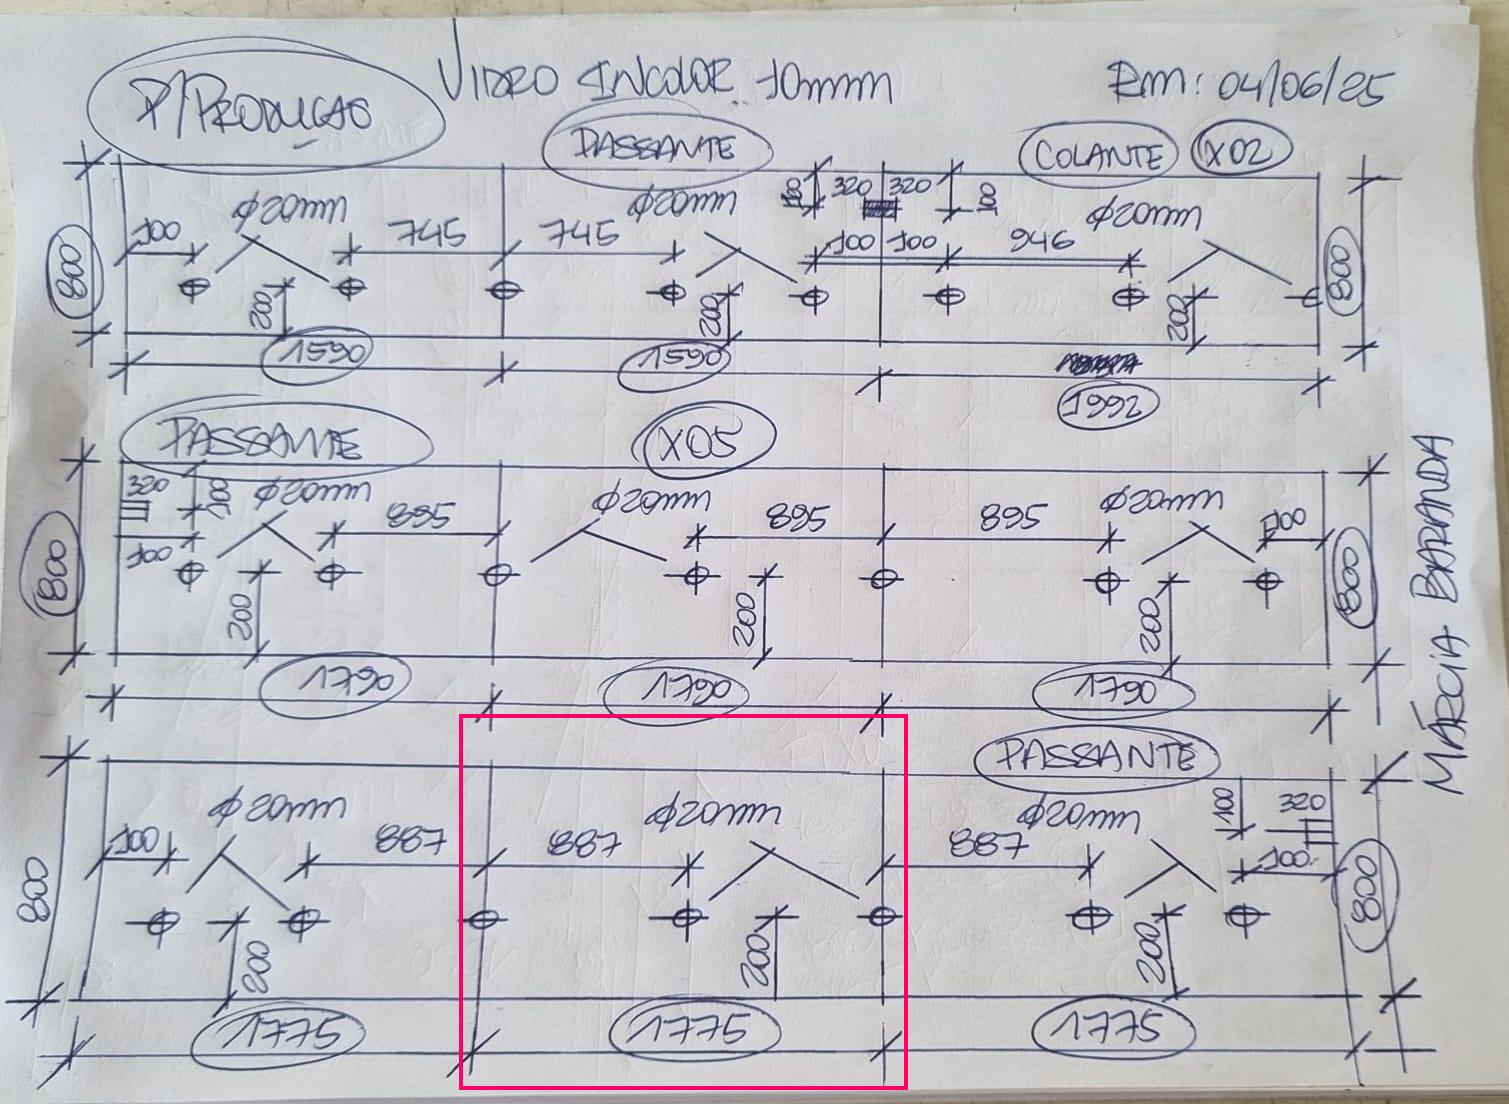 P/PRODUÇAO
VIDRO INCOLOR 10mm
RM: 04/06/25
PASSANTE
COLANTE X02
800
100
ϕ20mm
745
745
ϕ20mm
100
320
320
100
100
100
946
ϕ20mm
800
200
200
200
1590
1590
1992
PASSANTE
X05
800
320
100
ϕ20mm
895
ϕ20mm
895
895
ϕ20mm
100
100
800
200
200
200
1790
1790
1790
MÁRCIA BARANDA
PASSANTE
800
100
ϕ20mm
887
887
ϕ20mm
887
ϕ20mm
100
320
100
800
200
200
200
1775
1775
1775